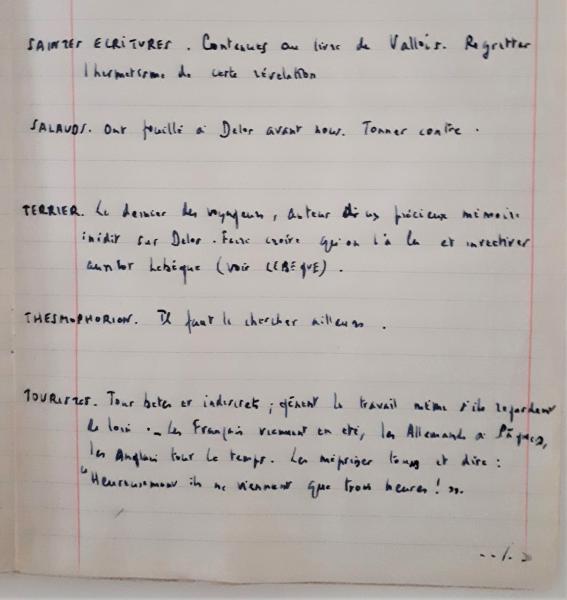 SAINTES ECRITURES. Contenues au livre de Vallois. Regretter
l'hermétisme de cette révélation
SALAUDS. Ont fouillé à Delos avant nous. Tonner contre.
TERRIER. Le dernier des voyageurs, auteur d'un précieux mémoire
inédit sur Delos. Faire croire qu'on l'a lu et invectiver
aussitôt Lebègue (voir LEBEGUE).
THESMOPHORION. Il faut le chercher ailleurs.
TOURISTES. Tous betes et indiscrets ; gênent le travail même s'ils regardent
de loin. — Les Français viennent en été, les Allemands à Pâques,
les Anglais tout le temps. Les mépriser tous et dire :
"Heureusement ils ne viennent que trois heures ! ".
../.